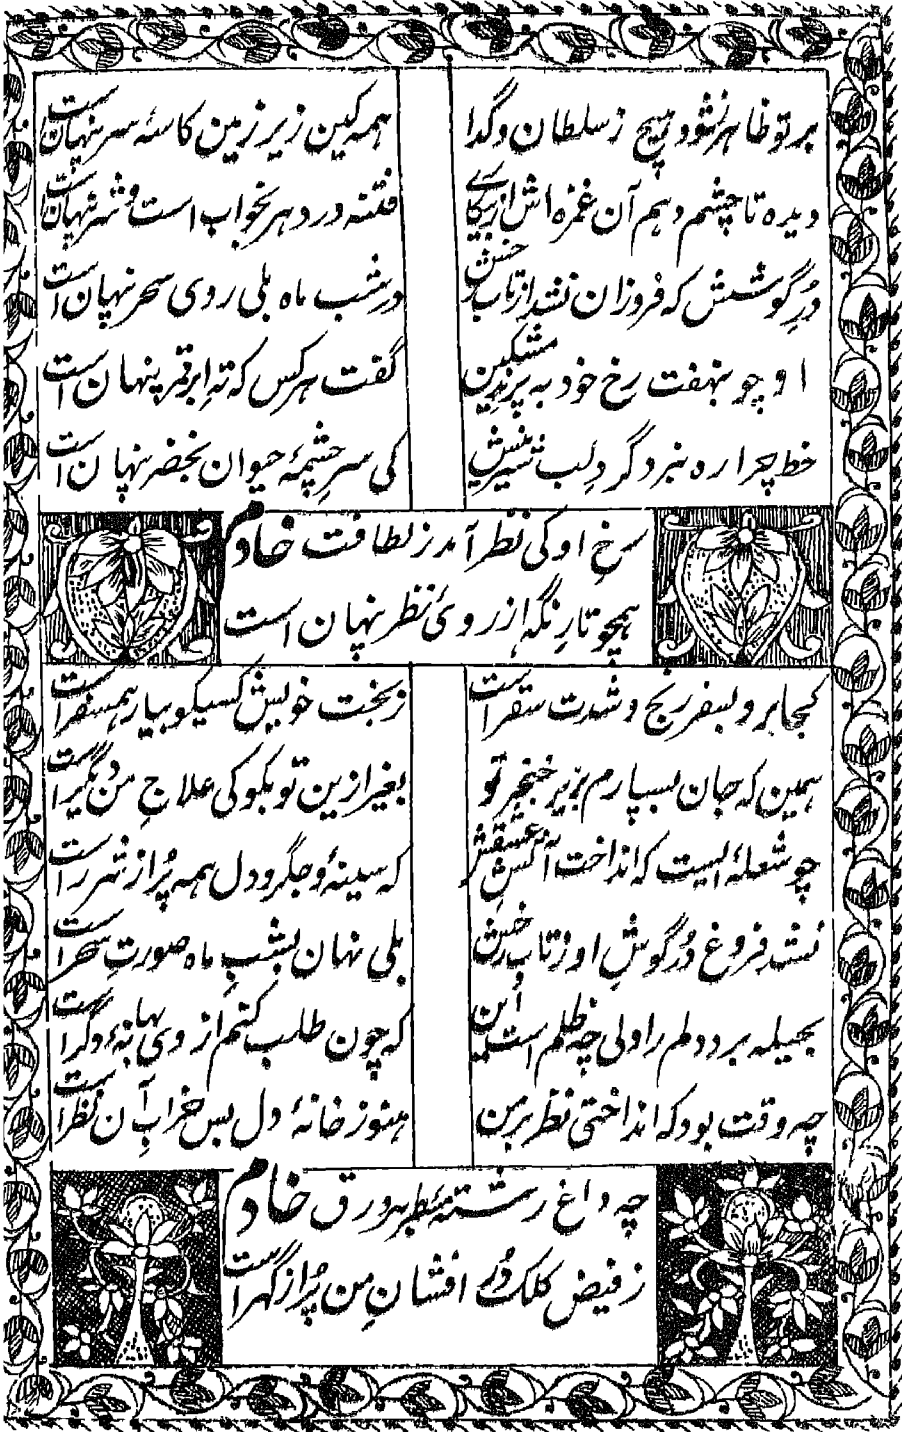 بر تو ظاہر نشود ہیچ ز سلطان و گدا
ہمہ کین زیر زمین کاسۂ سر پنہان است
دیدہ تا چشم دہم آن غمزہ اش از یکجای
فتنہ در دہر بخواب است و شر پنہان است
دُرِ گوشش کہ فروزان نشد از تاب
در شب ماہ بلی روی سحر پنہان است
او چو بنہفت رخ خود بہ پرندِ مشکین
گفت ہر کس کہ تہِ ابر قمر پنہان است
خط چرا رہ نبرد گر دِ لب شیرینش
کی سرِ چشمۂ حیوان بخضر پنہان است
سرخِ او کی نظر آمد ز لطافت خادم
ہمچو تارِ نگہ از روئ نظر پنہان است
کجا برو بسفر رنج و شدت سقر است
ز بخت خویش کسیکو بیار ہمسفر است
ہمین کہ جان بسپارم بزیر خنجر تو
بغیر ازین تو بگو کی علاجِ من دیگر است
چو شعلۂ ایست کہ انداخت آتشِ عشقش
کہ سینۂ و جگر و دل ہمہ پُر از شرر است
نشد فروغِ دُرِ گوشِ او ز تاب رخش
بلی نہان بشبِ ماہ صورتِ سحر است
بحیلہ برد دلم را ولی چہ ظلم است این
کہ چون طلب کنم از وی بہانۂ دگر است
چہ وقت بود کہ انداختی نظر بر من
ہنوز خانۂ دل بس خرابِ آن نظر است
چہ داغ رشتۂ سطر بر ورق خادم
ز فیض کلک دُر افشانِ من پُر از گہر است